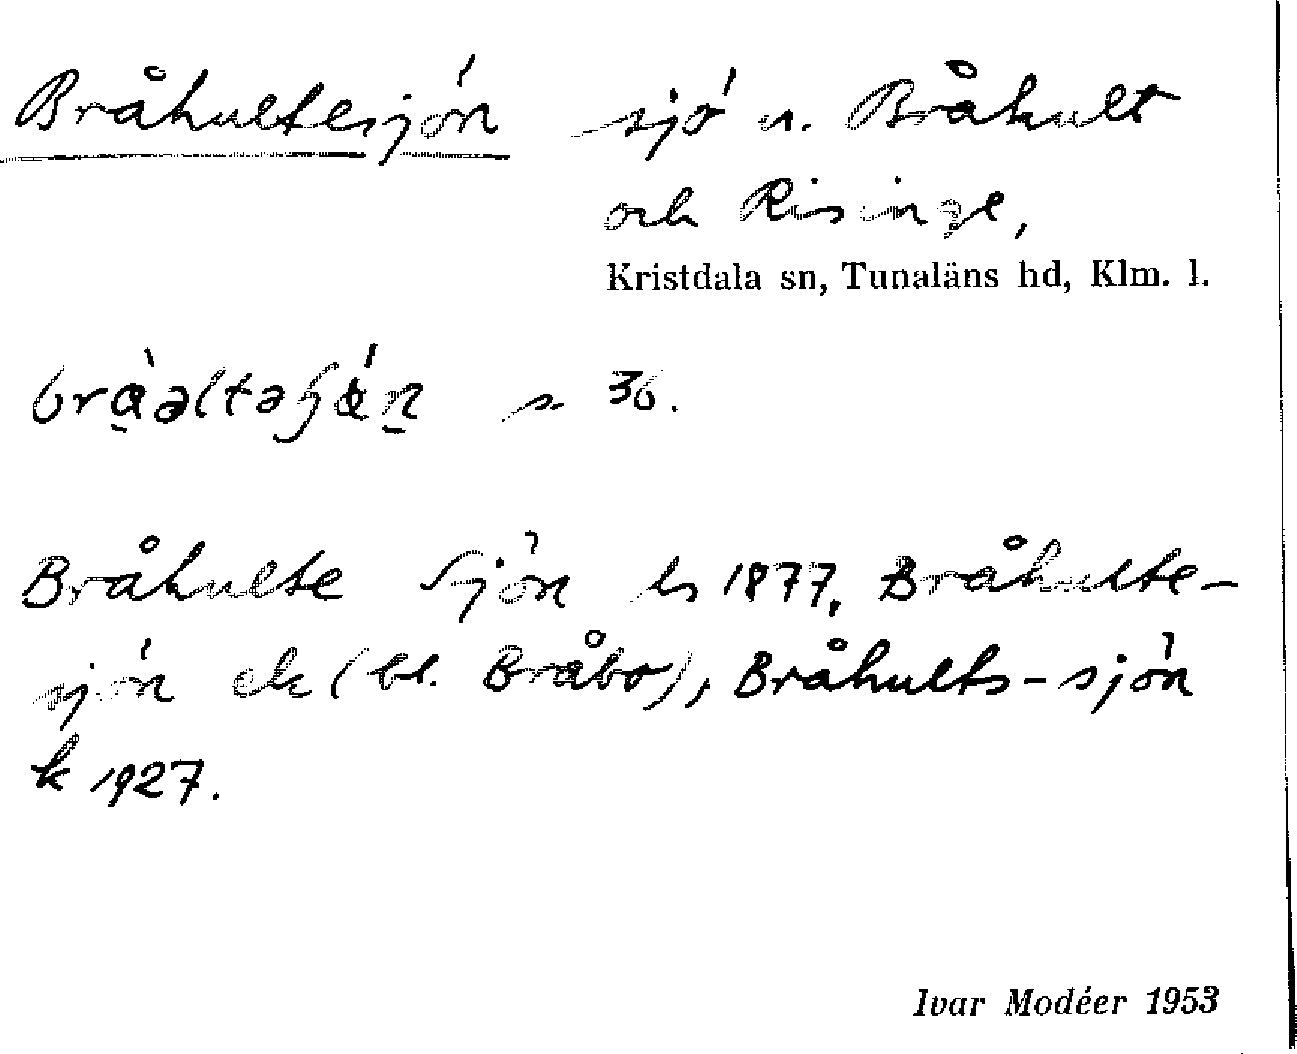 Bråhultesjön sjö u. Bråhult
och Risinge,
Kristdala sn, Tunaläns hd, Klm. l.
s. 36.
Bråhulte Sjön ls 1877, Bråhulte-
sjön ek (bl. Bråbo), Bråhults-sjön
k 1927.
Ivar Modéer 1953